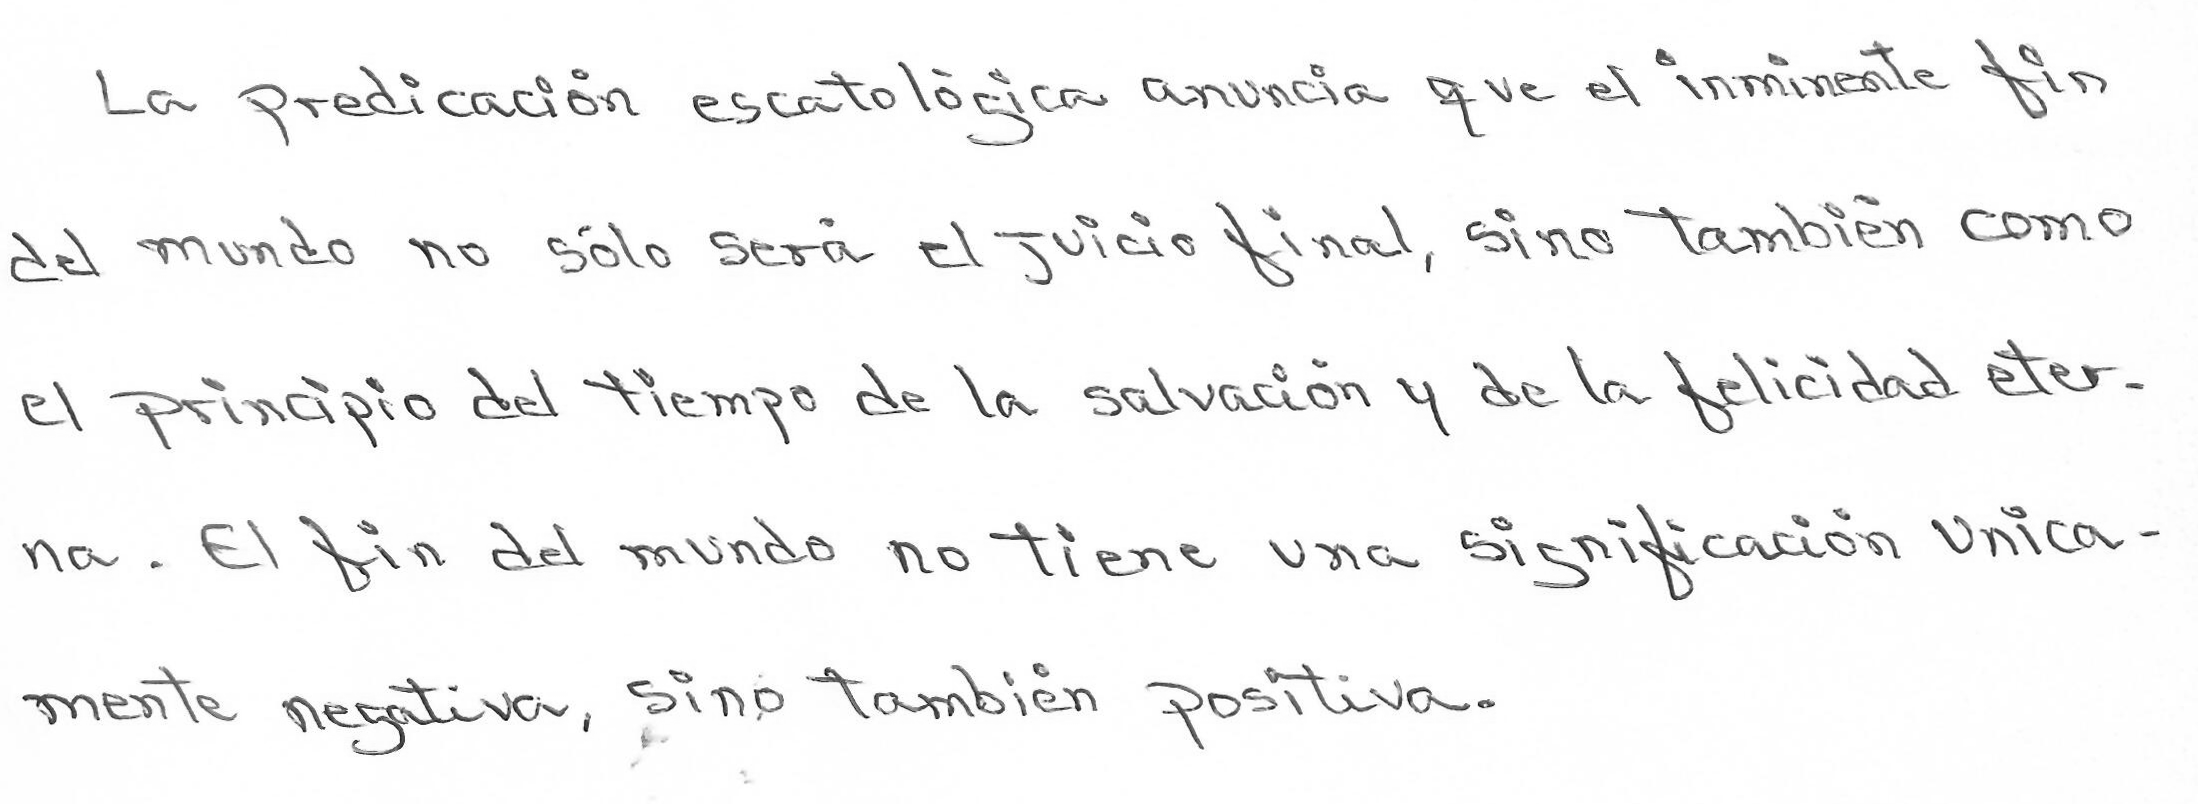 La predicación escatológica anuncia que el inminente fin
del mundo no sólo será el juicio final, sino también como
el principio del tiempo de la salvación y de la felicidad eter-
na. El fin del mundo no tiene una significación unica-
mente negativa, sino también positiva.